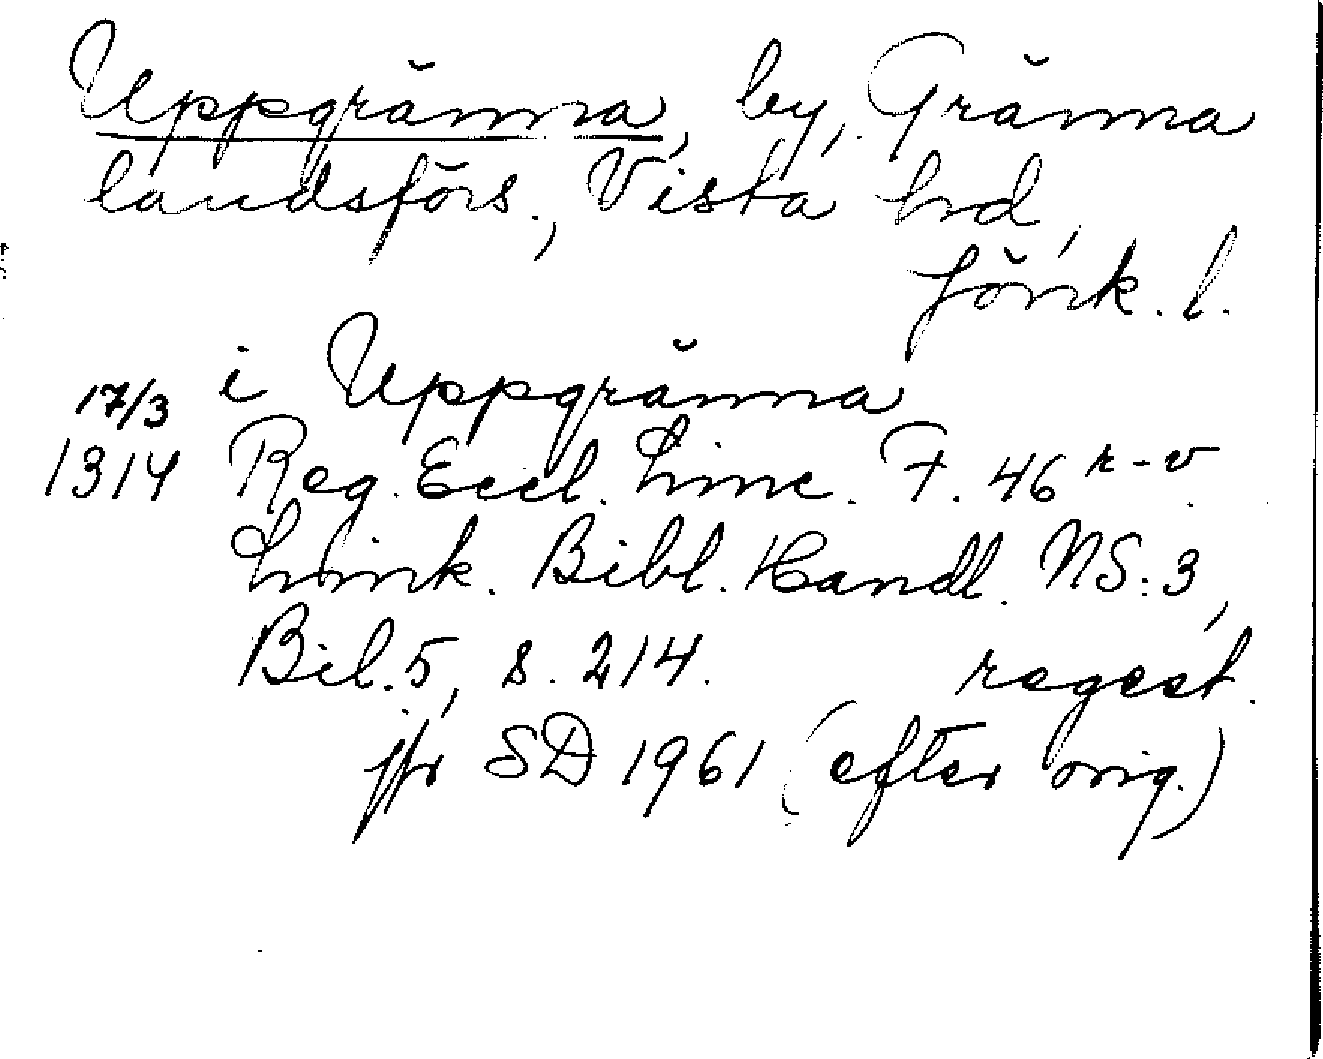 Uppgränna, by, Gränna
landsförs., Vista hd,
Jönk. l.
17/3 i Uppgränna
1314 Reg. Eccl. Linc. F. 46 r-v.
Link. Bibl. Handl. NS: 3,
Bil. 5, s. 214. regest.
jfr SD 1961 (efter orig.)